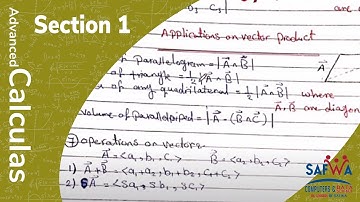 Advanced
Calculas
Section 1
Applications on vector Product
Parallelogram = |A⃗ ∧ B⃗|
of triangle = ½ |A⃗ ∧ B⃗|
of any quadrilateral = ½ |A⃗ ∧ B⃗| where
A⃗, B⃗ are diagon
volume of parallelpiped = |A⃗ · (B⃗ ∧ C⃗)|
7) operations on vectors
A⃗ = <a₁, b₁, c₁> B⃗ = <a₂, b₂, c₂>
1) A⃗ + B⃗ = <a₁+a₂, b₁+b₂, c₁+c₂>
2) SA⃗ = <Sa₁, Sb₁, SC₁>
SAFWA
COMPUTERS &